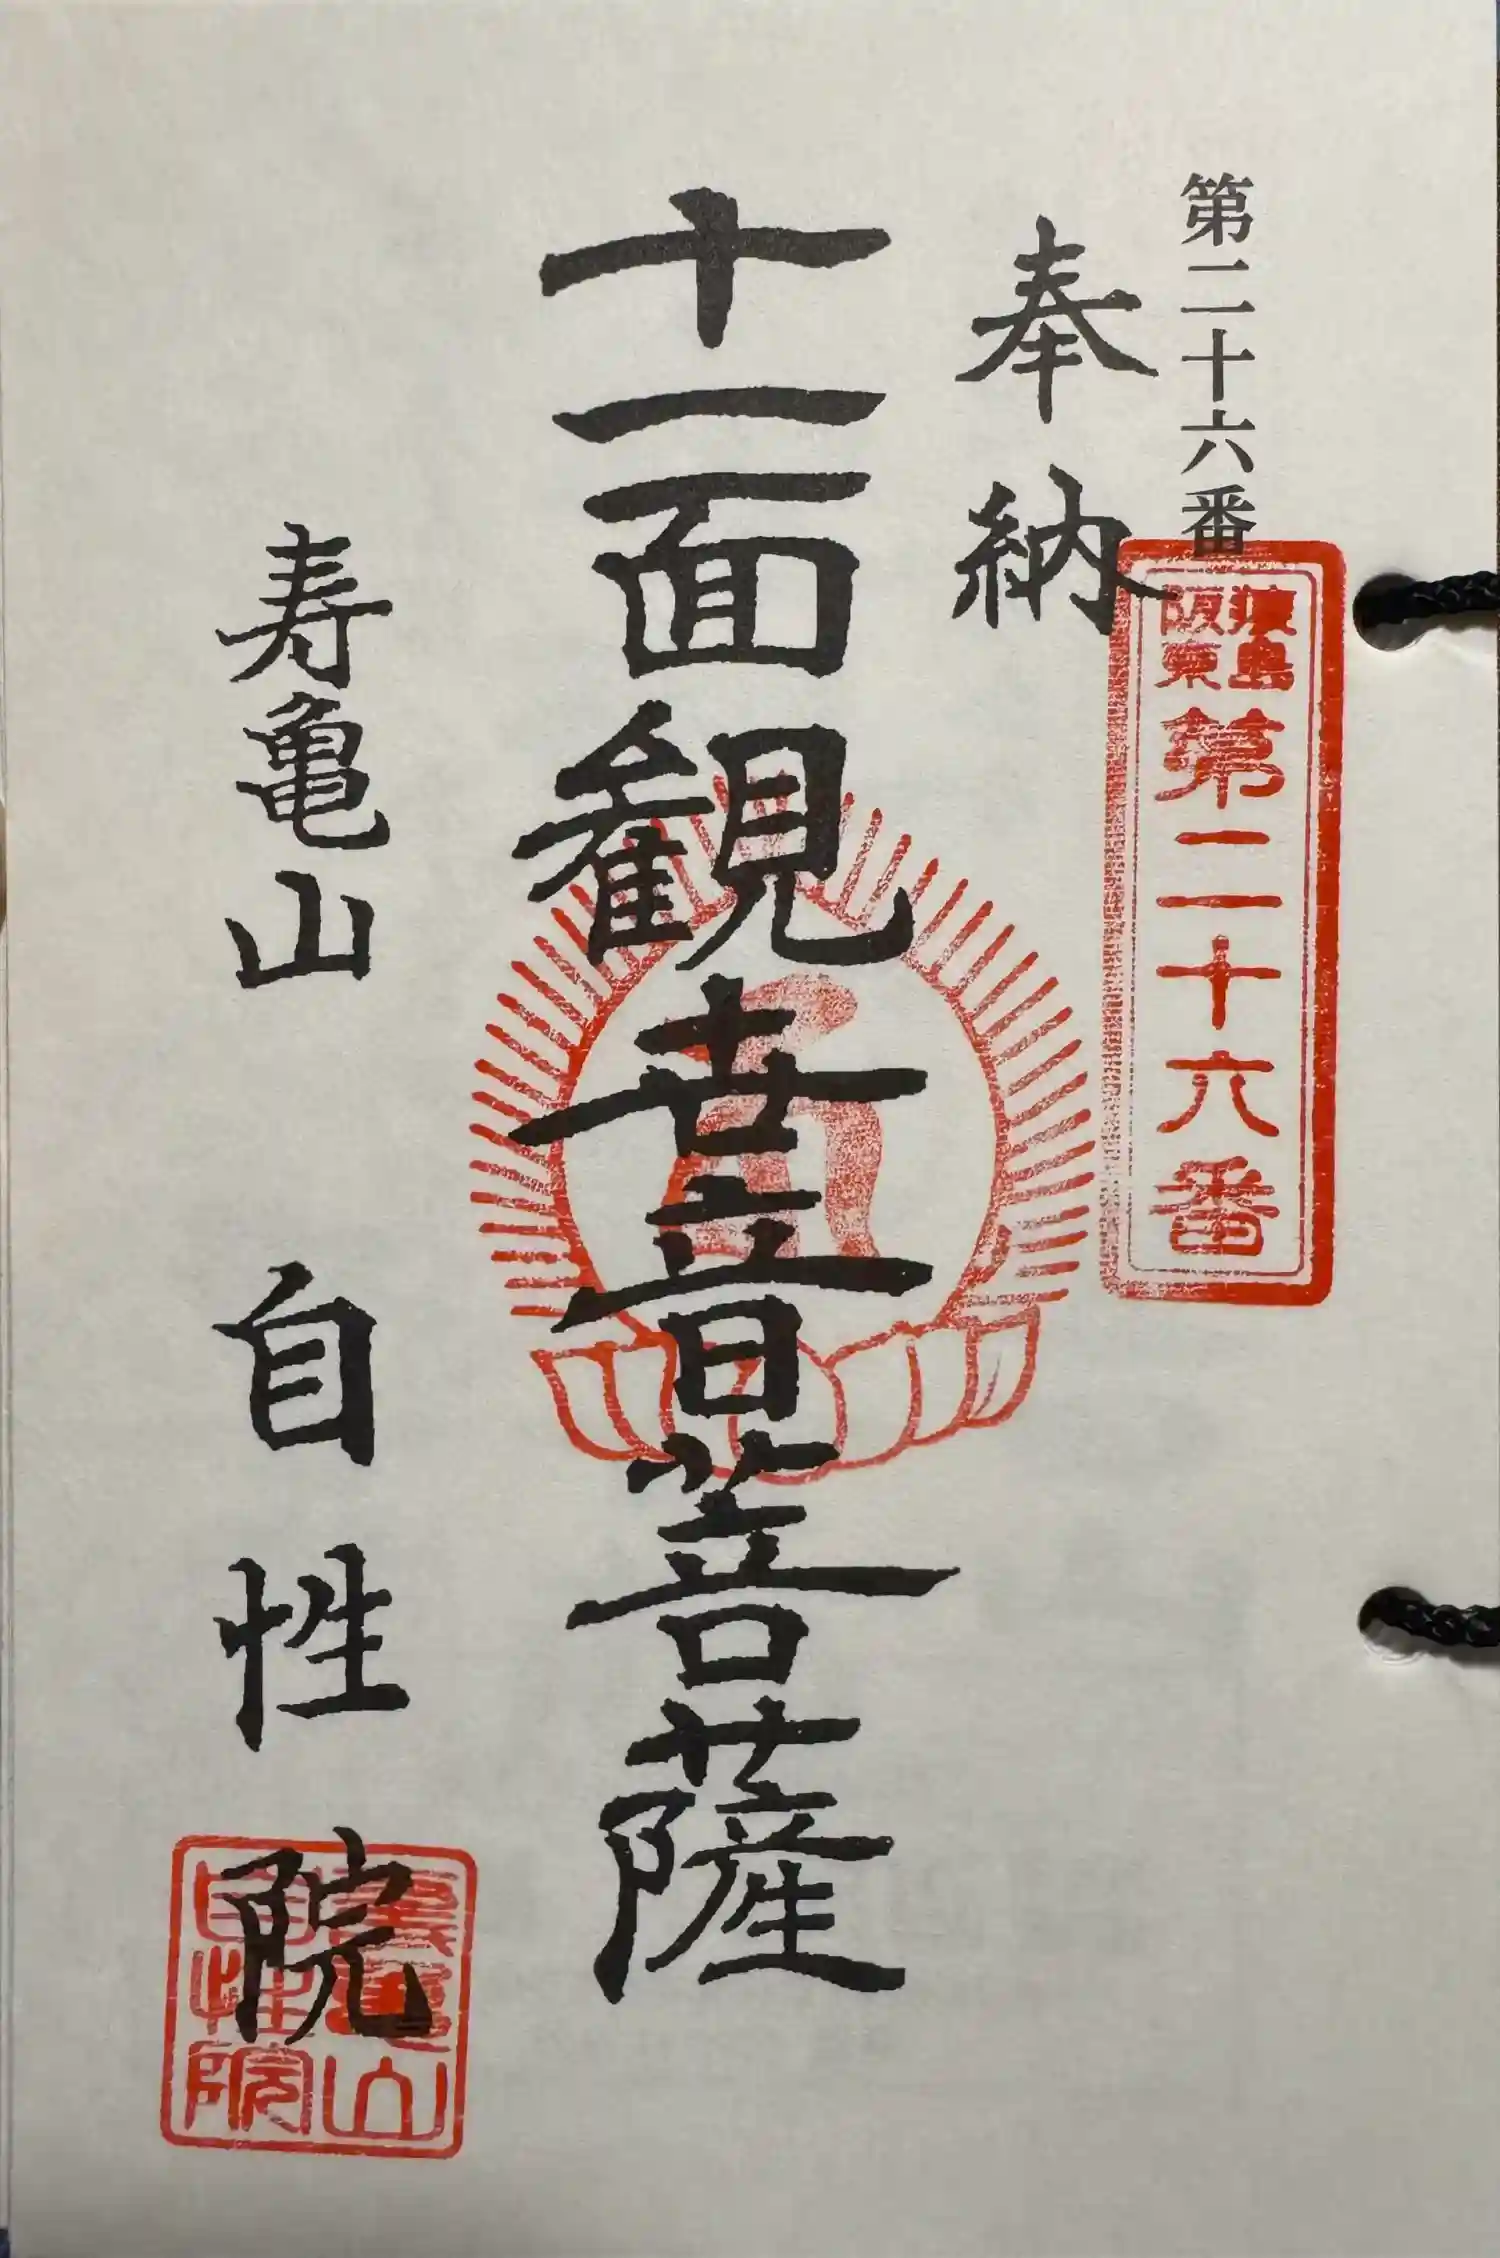 第二十六番
猿島
阪東
第二十六番
奉納
十一面観世音菩薩
寿亀山 自性院
壽亀山
自性院